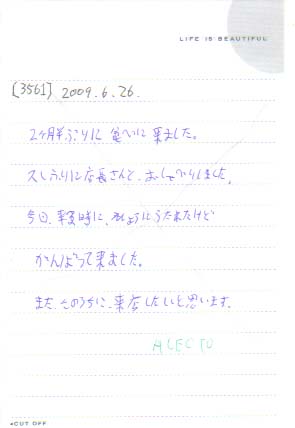 LIFE IS BEAUTIFUL
[3561] 2009.6.26.
2ヶ月半ぶりに食べに来ました。
久しぶりに店長さんと、おしゃべりしました。
今回、来る時に、雨にうたれたけど
がんばって来ました。
また、そのうちに、来店したいと思います。
ALECTO
*CUT OFF